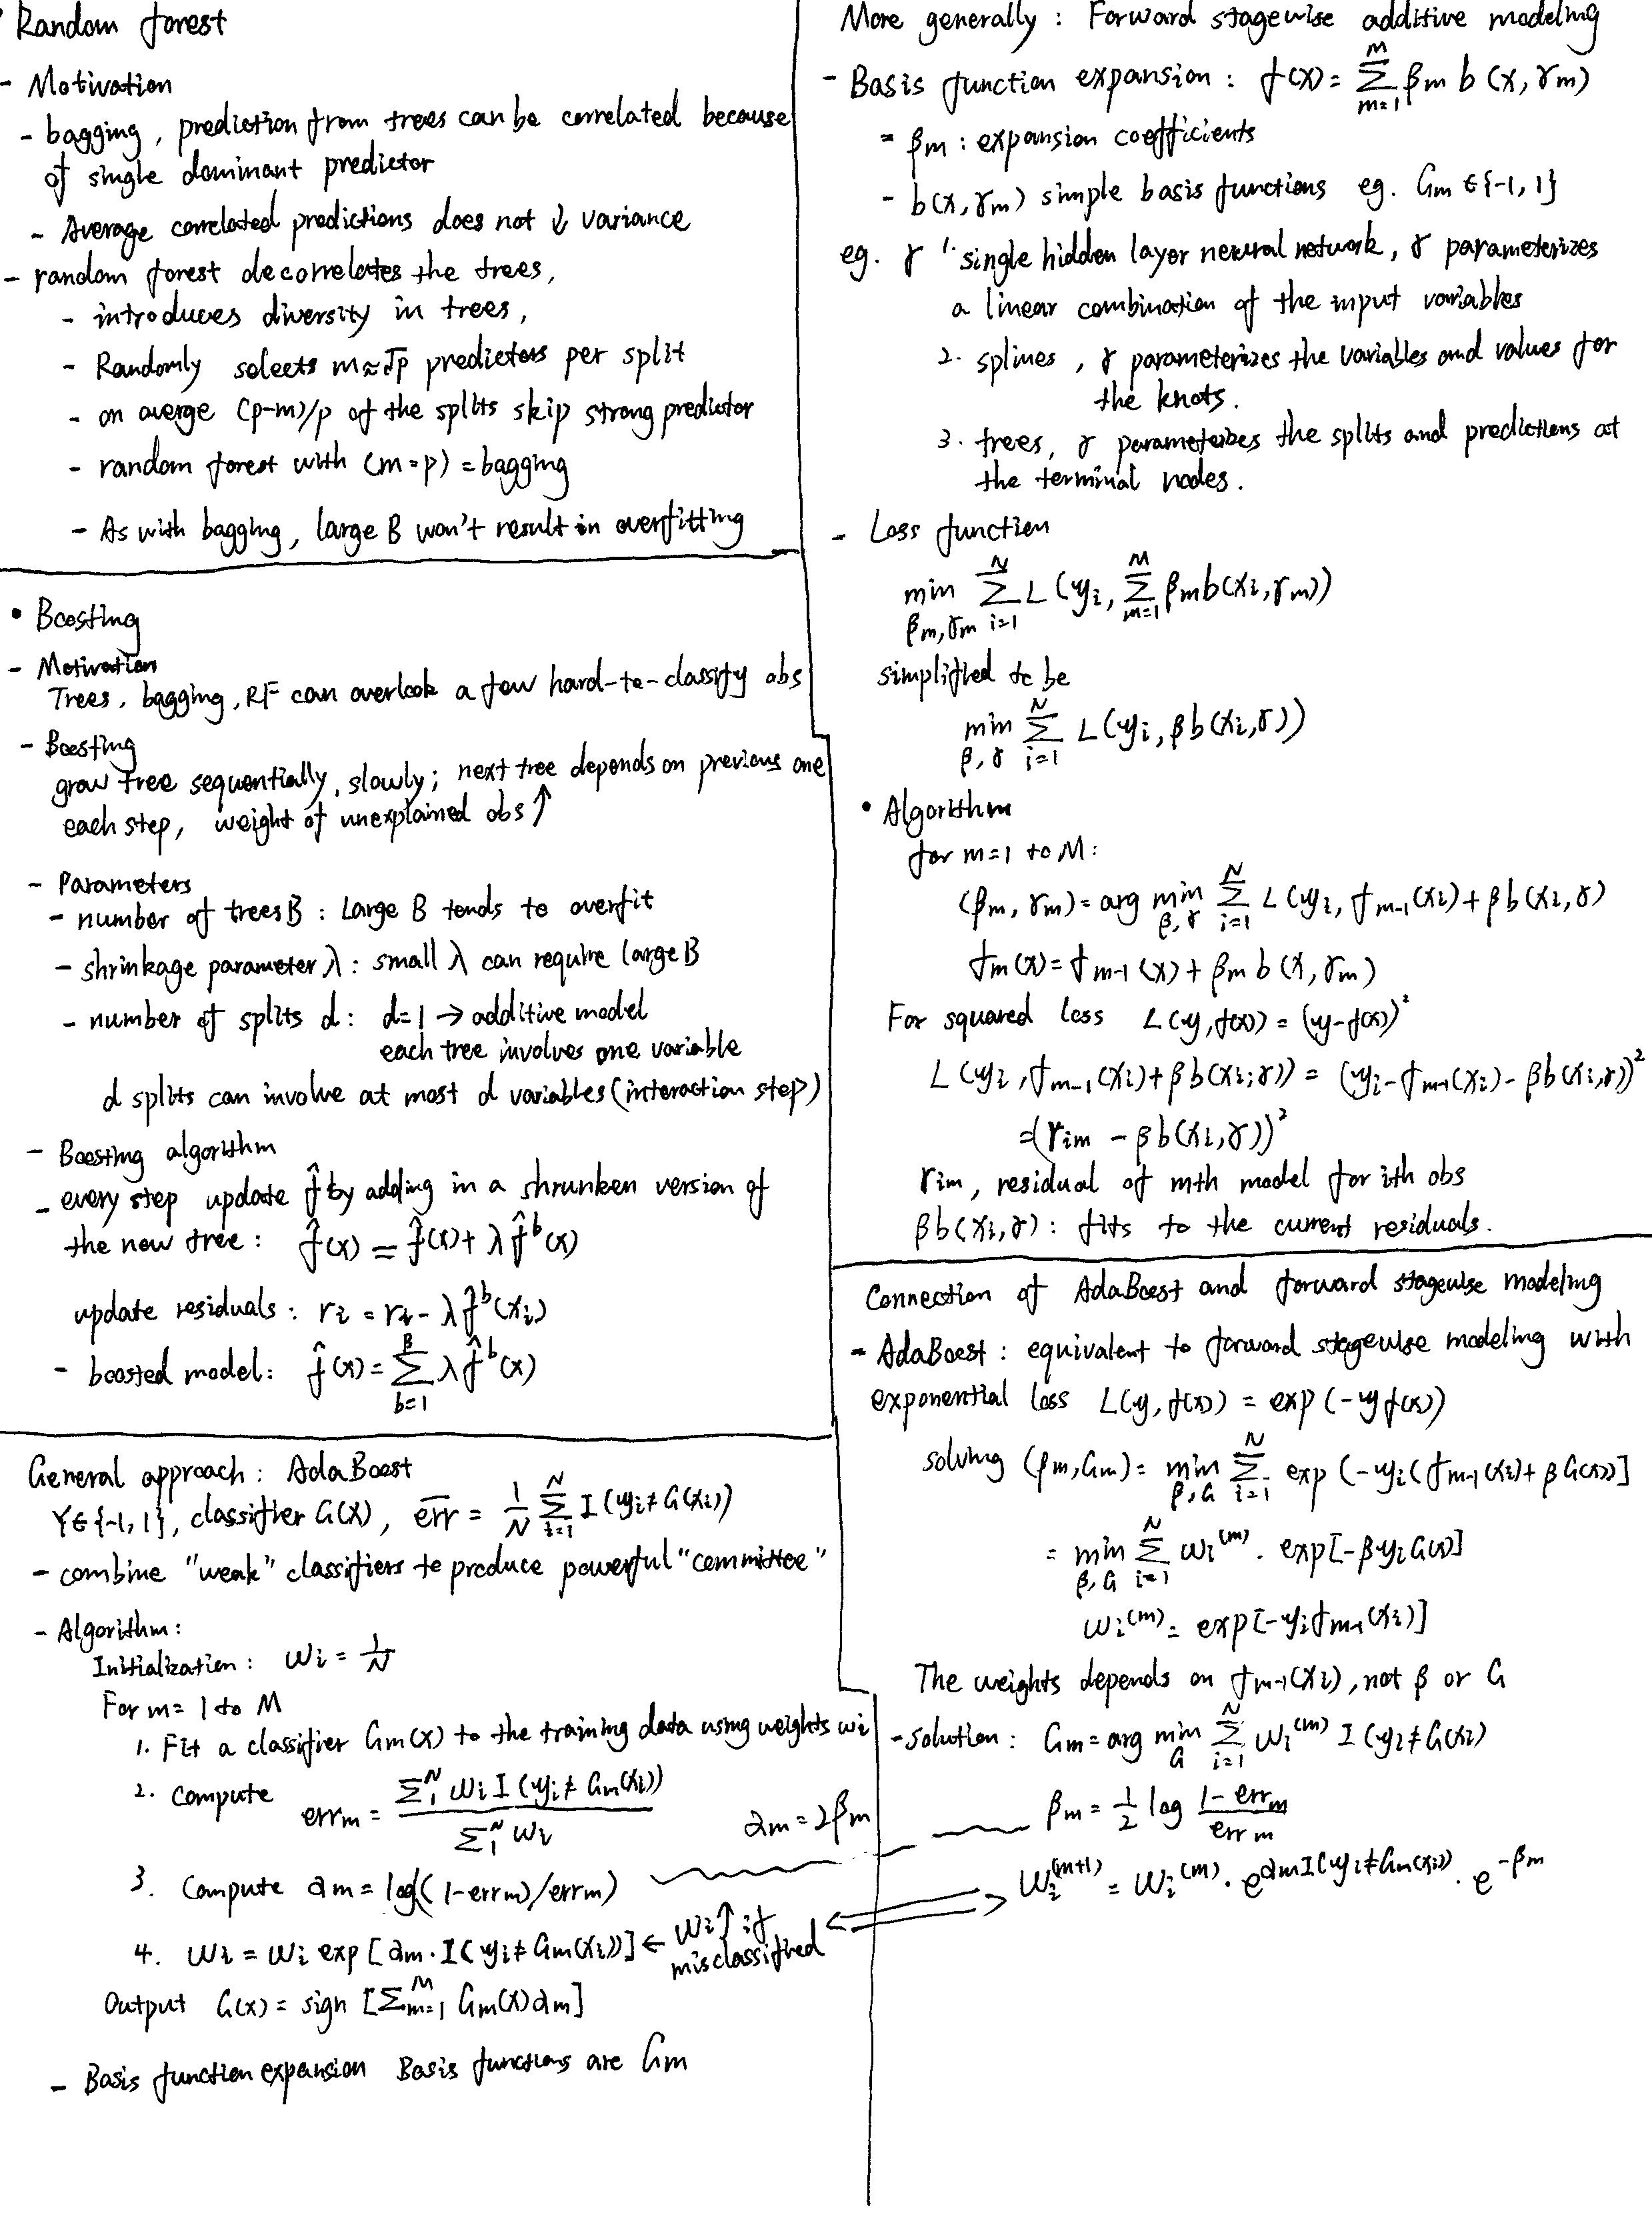 Random forest
- Motivation
- bagging, prediction from trees can be correlated because
of single dominant predictor
- Average correlated predictions does not ↓ variance
- random forest decorrelates the trees,
- introduces diversity in trees,
- Randomly selects m≈√p predictors per split
- on averge (p-m)/p of the splits skip strong predictor
- random forest with (m=p) = bagging
- As with bagging, large B won't result in overfitting
• Boosting
- Motivation
Trees, bagging, RF can overlook a few hard-to-classify obs
- Boosting
grow tree sequentially, slowly; next tree depends on previous one
each step, weight of unexplained obs ↑
- Parameters
- number of trees B : Large B tends to overfit
- shrinkage parameter λ: small λ can require large B
- number of splits d: d=1 → additive model
each tree involves one variable
d splits can involve at most d variables (interaction step)
- Boosting algorithm
- every step update f̂ by adding in a shrunken version of
the new tree: f̂(x) = f̂(x) + λ f̂ᵇ(x)
update residuals: ri = ri - λ f̂ᵇ(xi)
- boosted model: f̂(x) = Σ_{b=1}^{B} λ f̂ᵇ(x)
General approach: AdaBoost
Y∈{-1,1}, classifier G(X), err̄ = 1/N Σ_{i=1}^{N} I(yi≠G(xi))
- combine "weak" classifiers to produce powerful "committee"
- Algorithm:
Initialization: wi = 1/N
For m= 1 to M
1. Fit a classifier Gm(x) to the training data using weights wi
2. Compute errm = Σ_1^N wi I(yi≠Gm(xi)) / Σ_1^N wi
αm=2βm
3. Compute αm = log((1-errm)/errm)
4. wi = wi exp[αm·I(yi≠Gm(xi))] ← wi↑ if
misclassified
Output G(x) = sign [Σ_{m=1}^{M} Gm(x)αm]
- Basis function expansion Basis functions are Gm
More generally: Forward stagewise additive modeling
- Basis function expansion: f(x) = Σ_{m=1}^{M} βm b(x,γm)
- βm : expansion coefficients
- b(x,γm) simple basis functions eg. Gm∈{-1,1}
eg. γ 1. single hidden layer neural network, γ parameterizes
a linear combination of the input variables
2. splines, γ parameterizes the variables and values for
the knots.
3. trees, γ parameterizes the splits and predictions at
the terminal nodes.
- Loss function
min_{βm,γm} Σ_{i=1}^{N} L(yi, Σ_{m=1}^{M} βmb(xi,γm))
simplified to be
min_{β,γ} Σ_{i=1}^{N} L(yi, βb(xi,γ))
• Algorithm
for m=1 to M:
(βm,γm) = arg min_{β,γ} Σ_{i=1}^{N} L(yi, fm-1(xi)+βb(xi,γ)
fm(x) = fm-1(x) + βm b(x,γm)
For squared loss L(y,f(x)) = (y-f(x))²
L(yi, fm-1(xi)+βb(xi;γ)) = (yi-fm-1(xi)-βb(xi,γ))²
=(rim - βb(xi,γ))²
rim, residual of mth model for ith obs
βb(xi,γ): fits to the current residuals.
Connection of AdaBoost and forward stagewise modeling
- AdaBoost: equivalent to forward stagewise modeling with
exponential loss L(y,f(x)) = exp(-yf(x))
solving (βm,Gm) = min_{β,G} Σ_{i=1}^{N} exp(-yi(fm-1(xi)+βG(x))]
= min_{β,G} Σ_{i=1}^{N} wi^(m) · exp[-βyiG(x)]
wi^(m) = exp[-yifm-1(xi)]
The weights depends on fm-1(xi), not β or G
- solution: Gm = arg min_G Σ_{i=1}^{N} wi^(m) I(yi≠G(xi)
βm = 1/2 log (1-errm)/errm
wi^(m+1) = wi^(m) · e^{αmI(yi≠Gm(xi))} · e^{-βm}